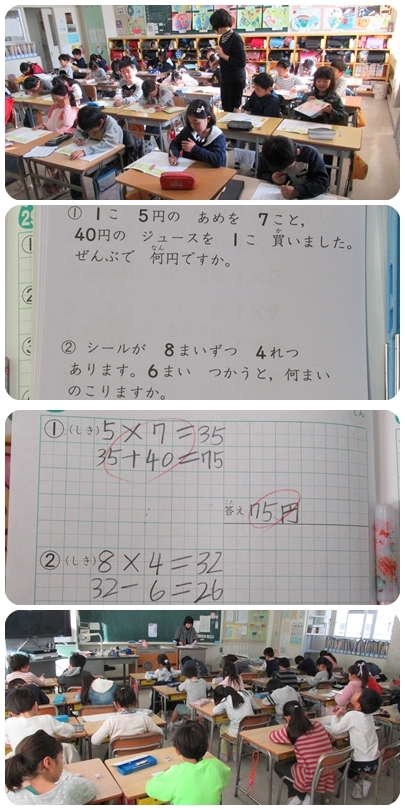 ① 1こ 5円の あめを 7こと,
40円の ジュースを 1こ 買いました。
ぜんぶで 何円ですか。
② シールが 8まいずつ 4れつ
あります。6まい つかうと, 何まい
のこりますか。
① (しき) 5×7=35
35+40=75
答え 75円
② (しき) 8×4=32
32-6=26